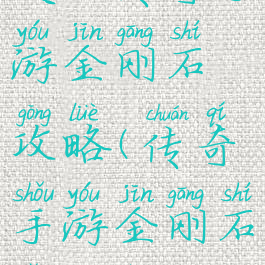 yóu jīn gāng shí
游金刚石
gōng lüè chuán qí
攻略(传奇
shǒu yóu jīn gāng shí
手游金刚石